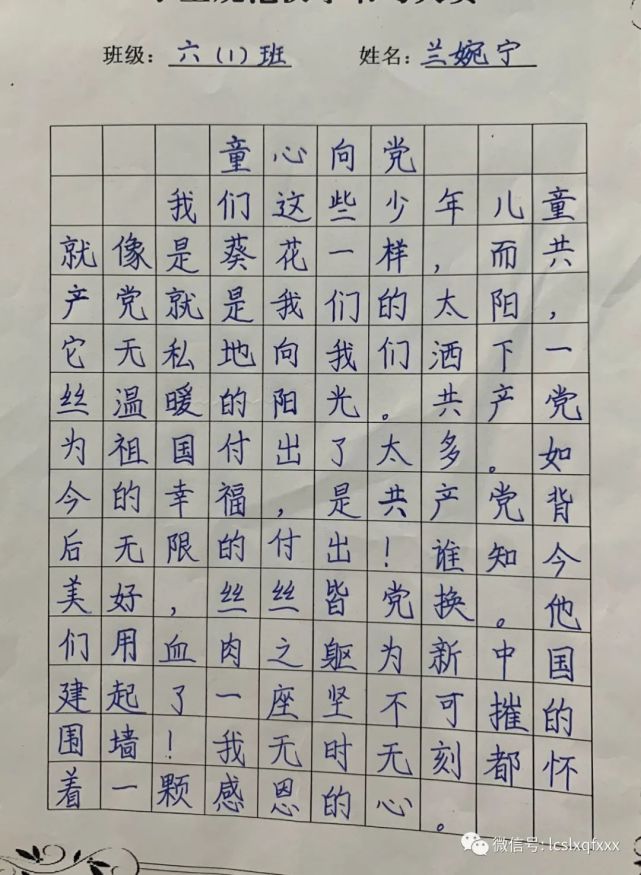 班级：六（1）班 姓名：兰婉宁
童心向党
我们这些少年儿童
就像是葵花一样，而共
产党就是我们的太阳，
它无私地向我们洒下一
丝温暖的阳光。共产党
为祖国付出了太多。如
今的幸福，是共产党背
后无限的付出！谁知今
美好，丝丝皆党换。他
们用血肉之躯为新中国
建起了一座坚不可摧的
围墙！我无时无刻都怀
着一颗感恩的心。
微信号: lcslxqfxxx